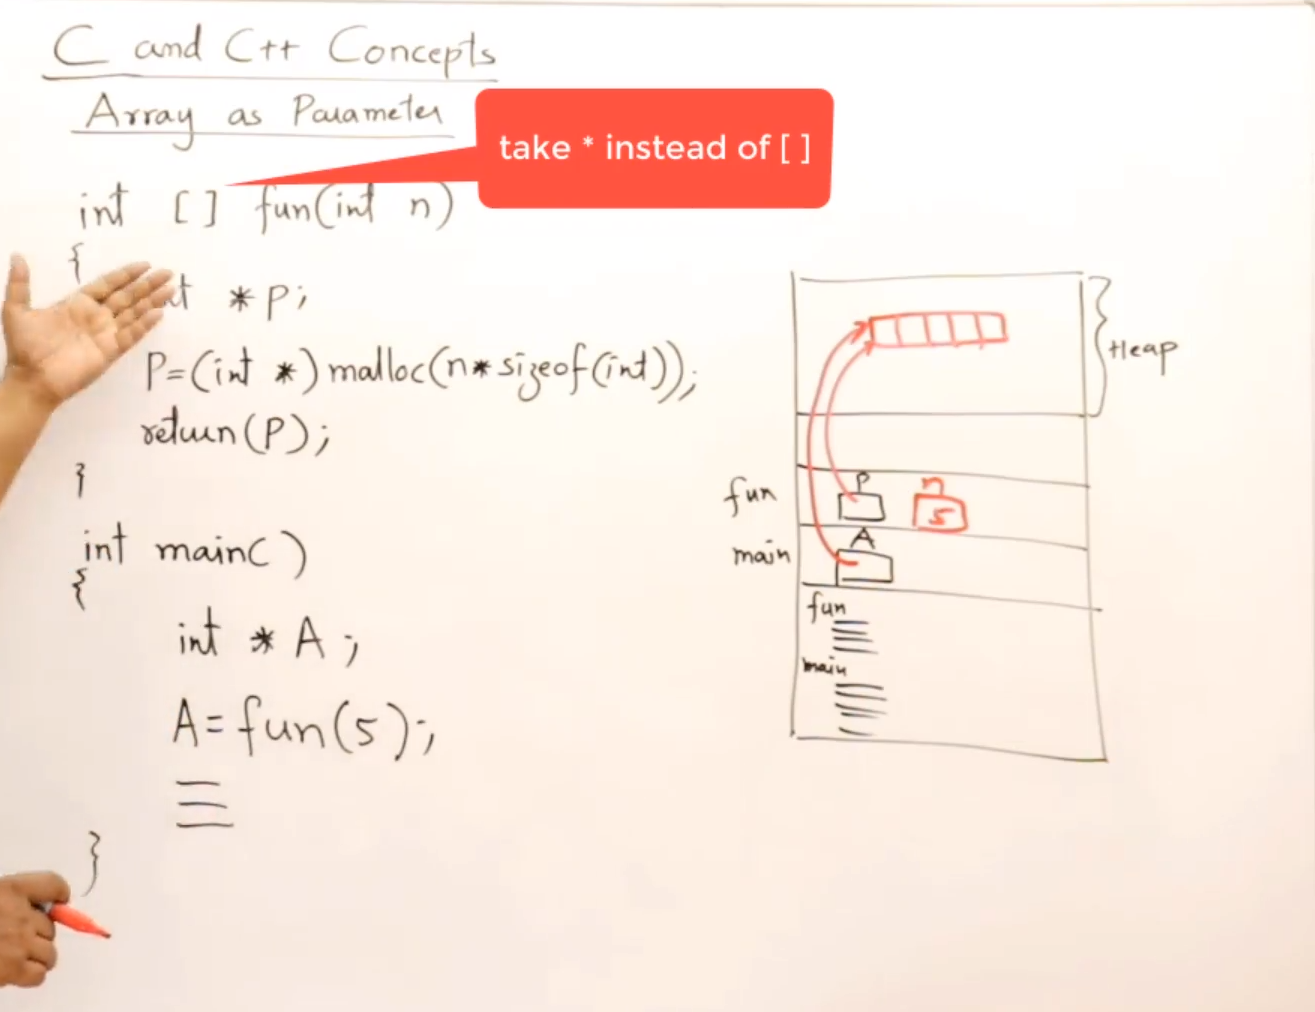 C and C++ Concepts
Array as Parameter
take * instead of [ ]
int [ ] fun(int n)
{
*P;
P=(int *) malloc(n*sizeof(int));
return(P);
}
int main( )
{
int * A ;
A=fun(5);
}
Heap
fun
P
n
5
main
A
fun
main